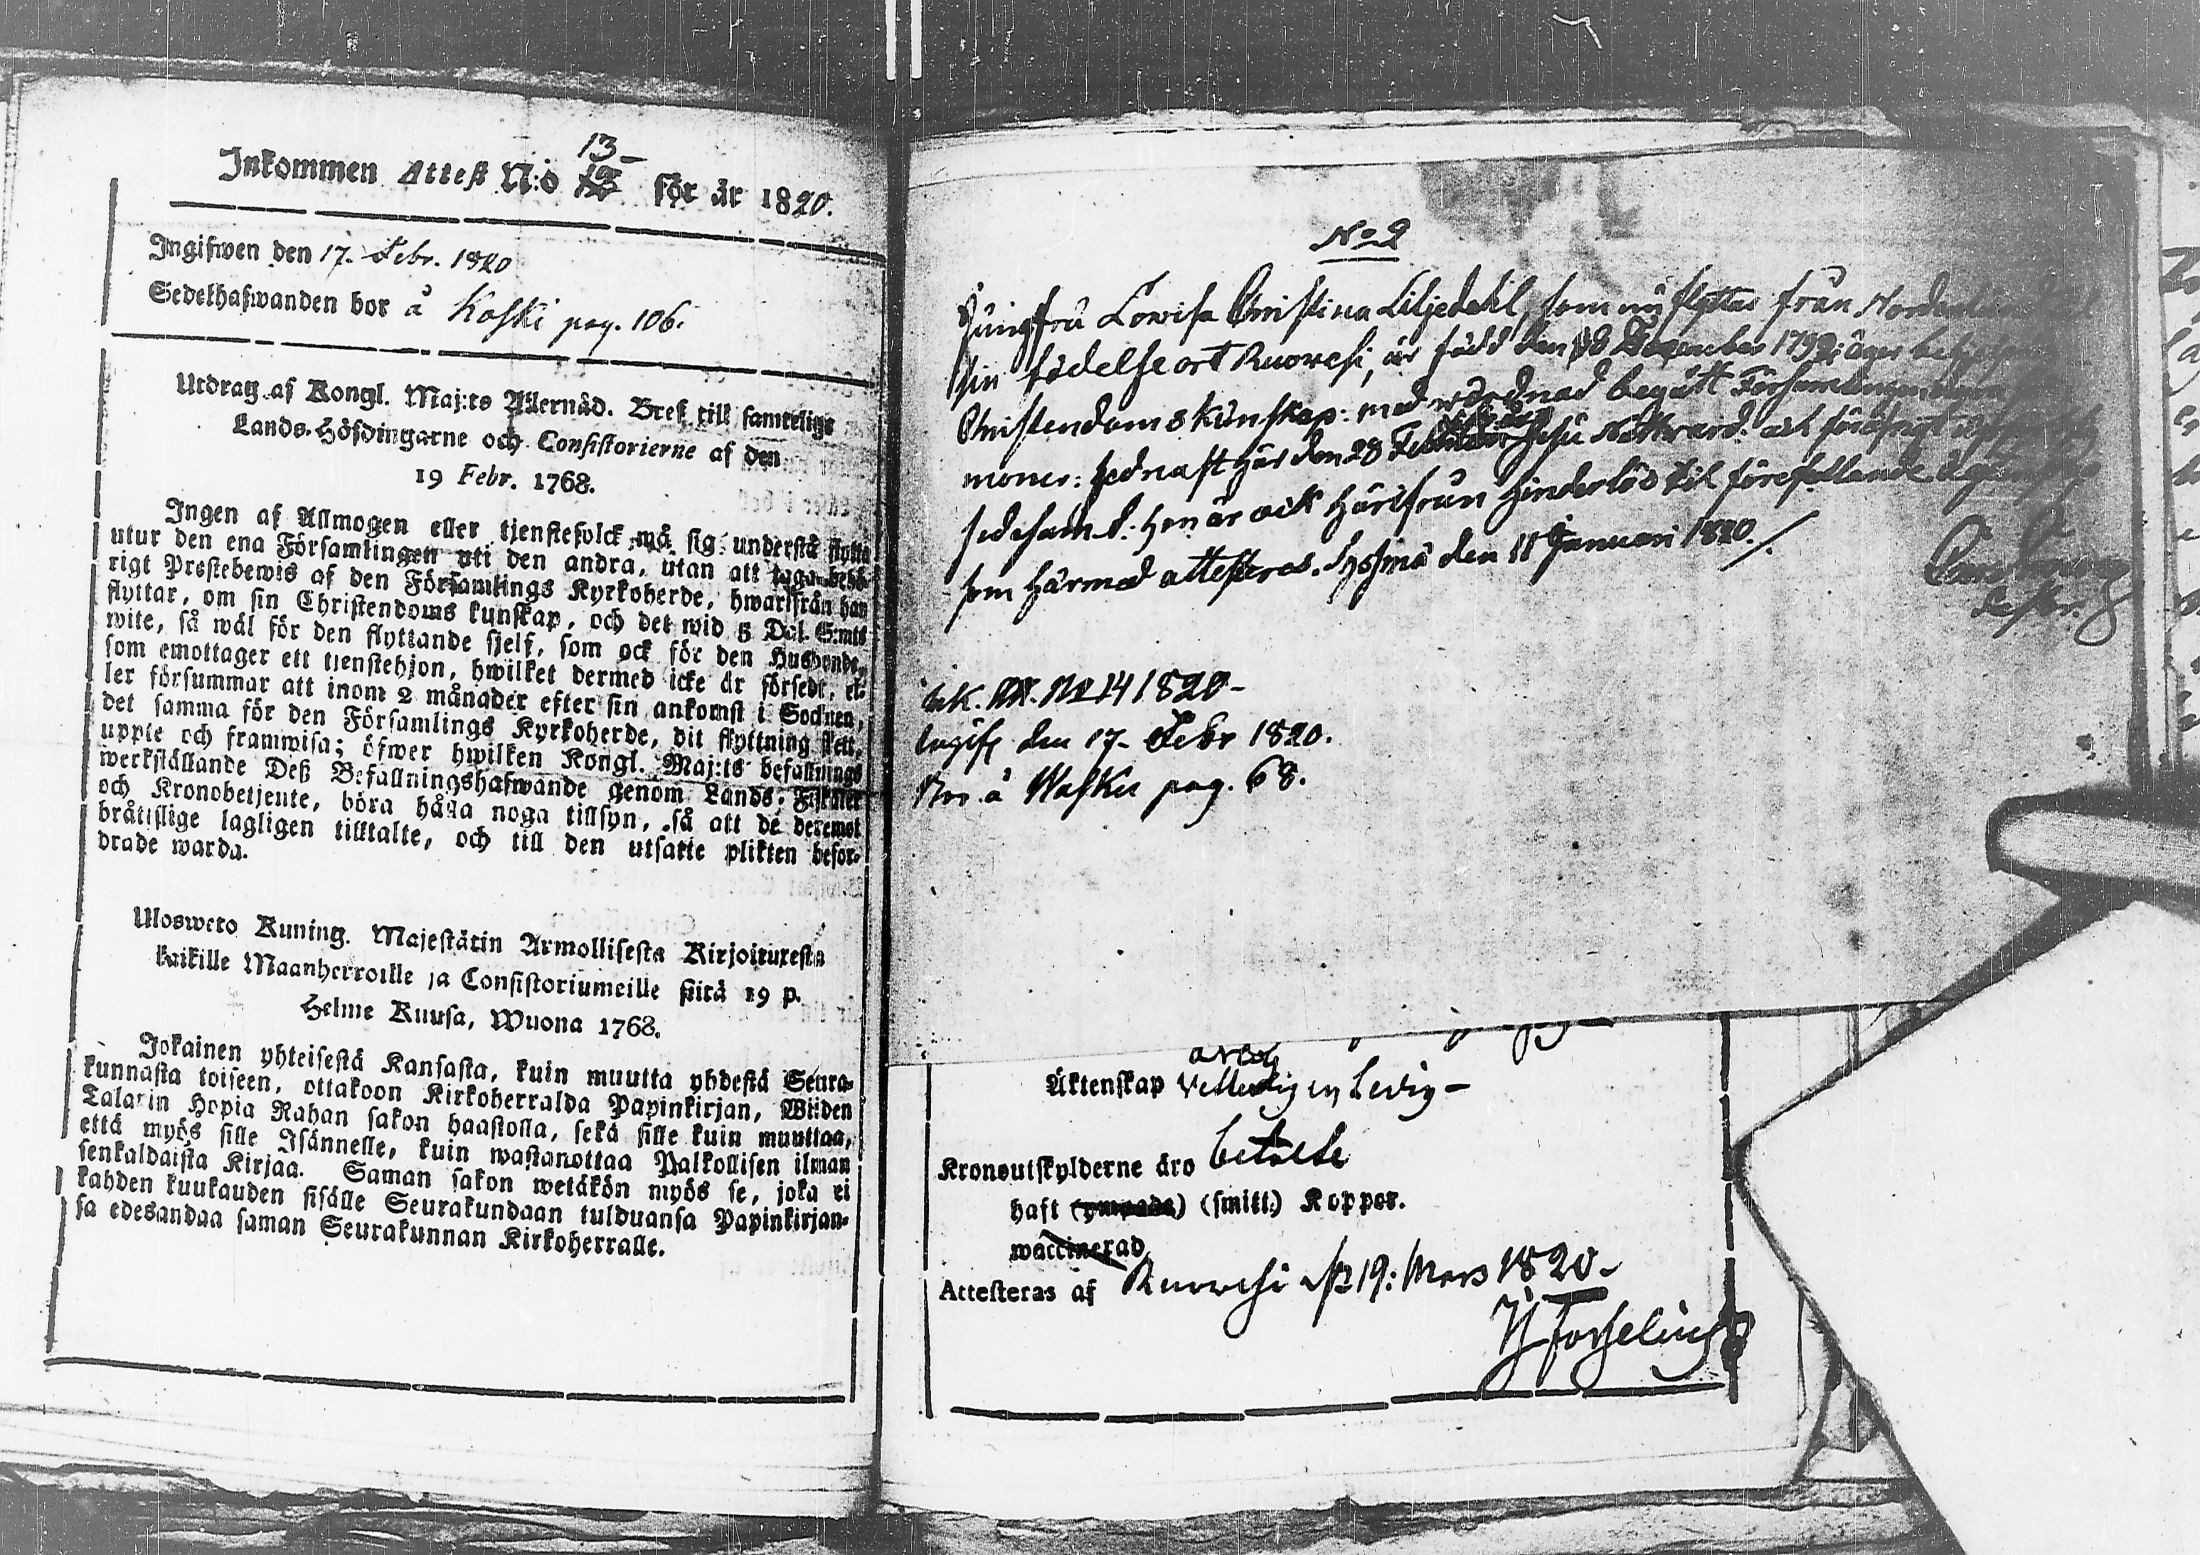 Inkommen Attest N:o 13 för år 1820.
Ingifwen den 17. Febr. 1820
Sedelhafwanden bor å Koski pag. 106.
Utdrag af Kongl. Maj:ts Allernåd. Bref till samtelige
Lands-Höfdingarne och Consistorierne af den
19 Febr. 1768.
Ingen af Allmogen eller tjenstefolck må sig understå flytta
utur den ena Församlingen uti den andra, utan att taga behö-
rigt Prestebewis af den Församlings Kyrkoherde, hwarifrån han
flyttar, om sin Christendoms kunskap, och det wid 5 Dal. S:mts
wite, så wäl för den flyttande sjelf, som ock för den Husbonde,
som emottager ett tjenstehjon, hwilket dermed icke är försedt, el-
ler försummar att inom 2 månader efter sin ankomst i Socknen,
det samma för den Församlings Kyrkoherde, dit flyttning skett,
uppte och framwisa; öfwer hwilken Kongl. Maj:ts befallnings
werkställande Deß Befallningshafwande genom Lands-Fiskaler
och Kronobetjente, böra hålla noga tillsyn, så att de deremot
bråttslige lagligen tilltalte, och till den utsatte plikten befor-
drade warda.
Uloswero Kuning. Majestätin Armollisesta Kirjoituxesta
kaikille Maanherroille ja Consistoriumeille siitä 19 p.
Helme Kuusa, Wuona 1768.
Jokainen yhteisestä Kansasta, kuin muutta yhdestä Seura-
kunnasta toiseen, ottakoon Kirkoherralda Papinkirjan, Wiiden
Talarin Hopia Rahan sakon haastolla, sekä sille kuin muuttaa,
että myös sille Isännelle, kuin wastanottaa Palkollisen ilman
senkaldaista Kirjaa. Saman sakon wetäkön myös se, joka ei
kahden kuukauden sisälle Seurakundaan tulduansa Papinkirjan-
sa edesandaa saman Seurakunnan Kirkoherralle.
No 2
Jungfru Lowisa Christina Liljedahl, som nu flyttar från
sin födelse ort Ruowesi, är född den 18 December 1792; äger
Christendoms Kunskap: med wördnad begått Församlingen
moner: sednast här den 28 Jesu Nattward: och
sedesamt: hon är ock härifrån hinderlös til förefallande
som härmed attesteras. Sysmä den 11 Januari 1820.
Ink. Att. No 14 1820-
Ingifv den 17- Febr 1820.
Bor å pag. 68.
Äktenskap ledig
Kronoutskylderne äro betalte
haft (smitt.) Koppor.
waccinerad
Attesteras af Ruowesi 19: Mars 1820.